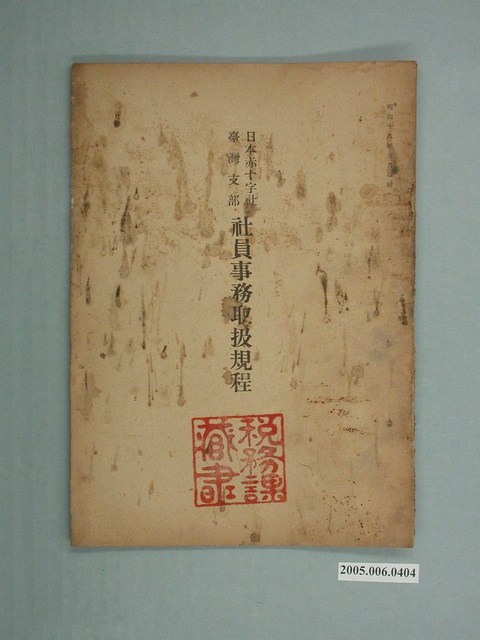 日本赤十字社
臺灣支部
社員事務取扱規程
税務課
藏書
2005.006.0404